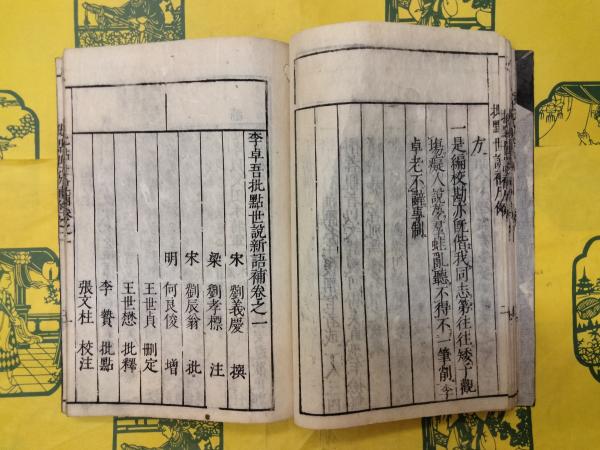 方
一是編校勘亦旣偕我同志第往往矮子觀
場癡人說夢羣蛙亂聽不得不一筆削李
卓老不辭專制
李卓吾批點世說新語補卷之一
宋 劉義慶 撰
梁 劉孝標 注
宋 劉辰翁 批
明 何良俊 增
王世貞 刪定
王世懋 批釋
李贄 批點
張文柱 校注